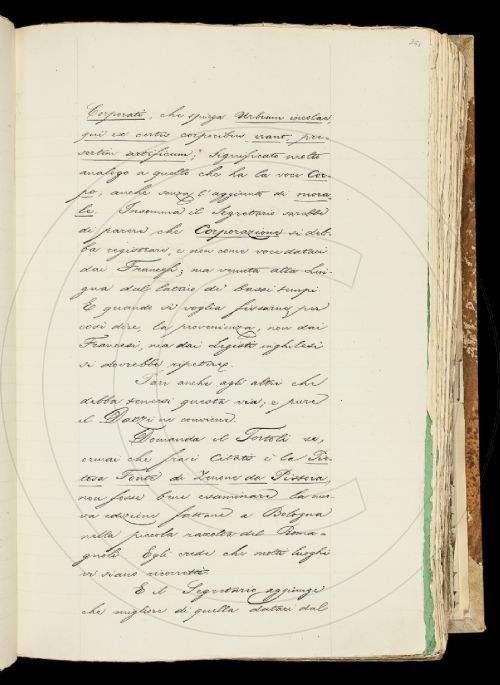 Corporati, che spiega Urbium incolae,
qui ex certis corporibus erant, prae-
sertim artificum; significato molto
analogo a quello che ha la voce Cor-
po, anche senza l'aggiunto di mora-
le. Insomma il Segretario sarebbe
di parere che Corporazione si deb-
ba registrare, e non come voce dataci
dai Francesi; ma venuta alla Lin-
gua dal latino de' bassi tempi
E quando si voglia fissarne, per
così dire, la provenienza, non dai
Francesi, ma dai Legisti inghilesi
si dovrebbe ripetere.
Pare anche agli altri che
debba tenersi questa via; e pure
il Dazzi ne conviene.
Domanda il Tortoli se,
ormai che fra i Citati è la Pie-
tosa Fonte di Zenone da Pistoia,
non fosse bene esaminare la nuo-
va edizione fattane a Bologna
nella piccola raccolta del Roma-
gnoli. Egli crede che molti luoghi
vi siano ricorretti.
E il Segretario aggiunge
che migliore di quella dataci dal